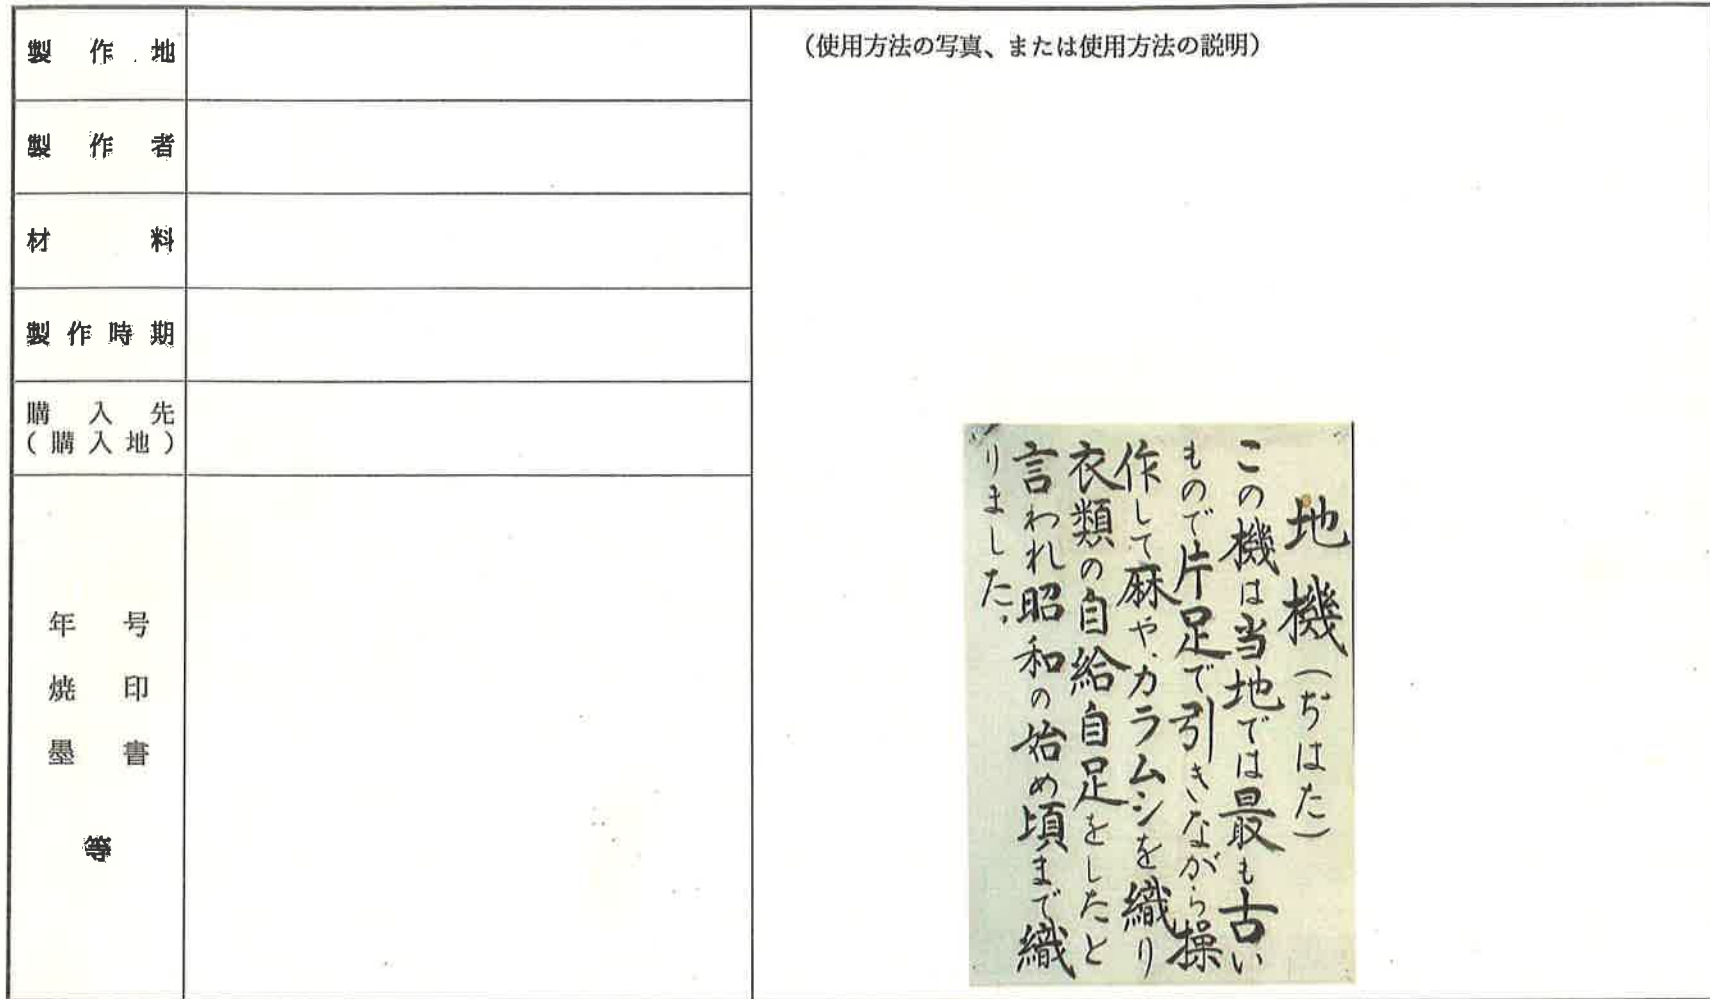 製作地
製作者
材料
製作時期
購入先
(購入地)
年号
焼印
墨書
等
(使用方法の写真、または使用方法の説明)
地機(ぢはた)
この機は当地では最も古い
もので片足で引きながら操
作して麻や、カラムシを織り
衣類の自給自足をしたと
言われ昭和の始め頃まで織
りました。